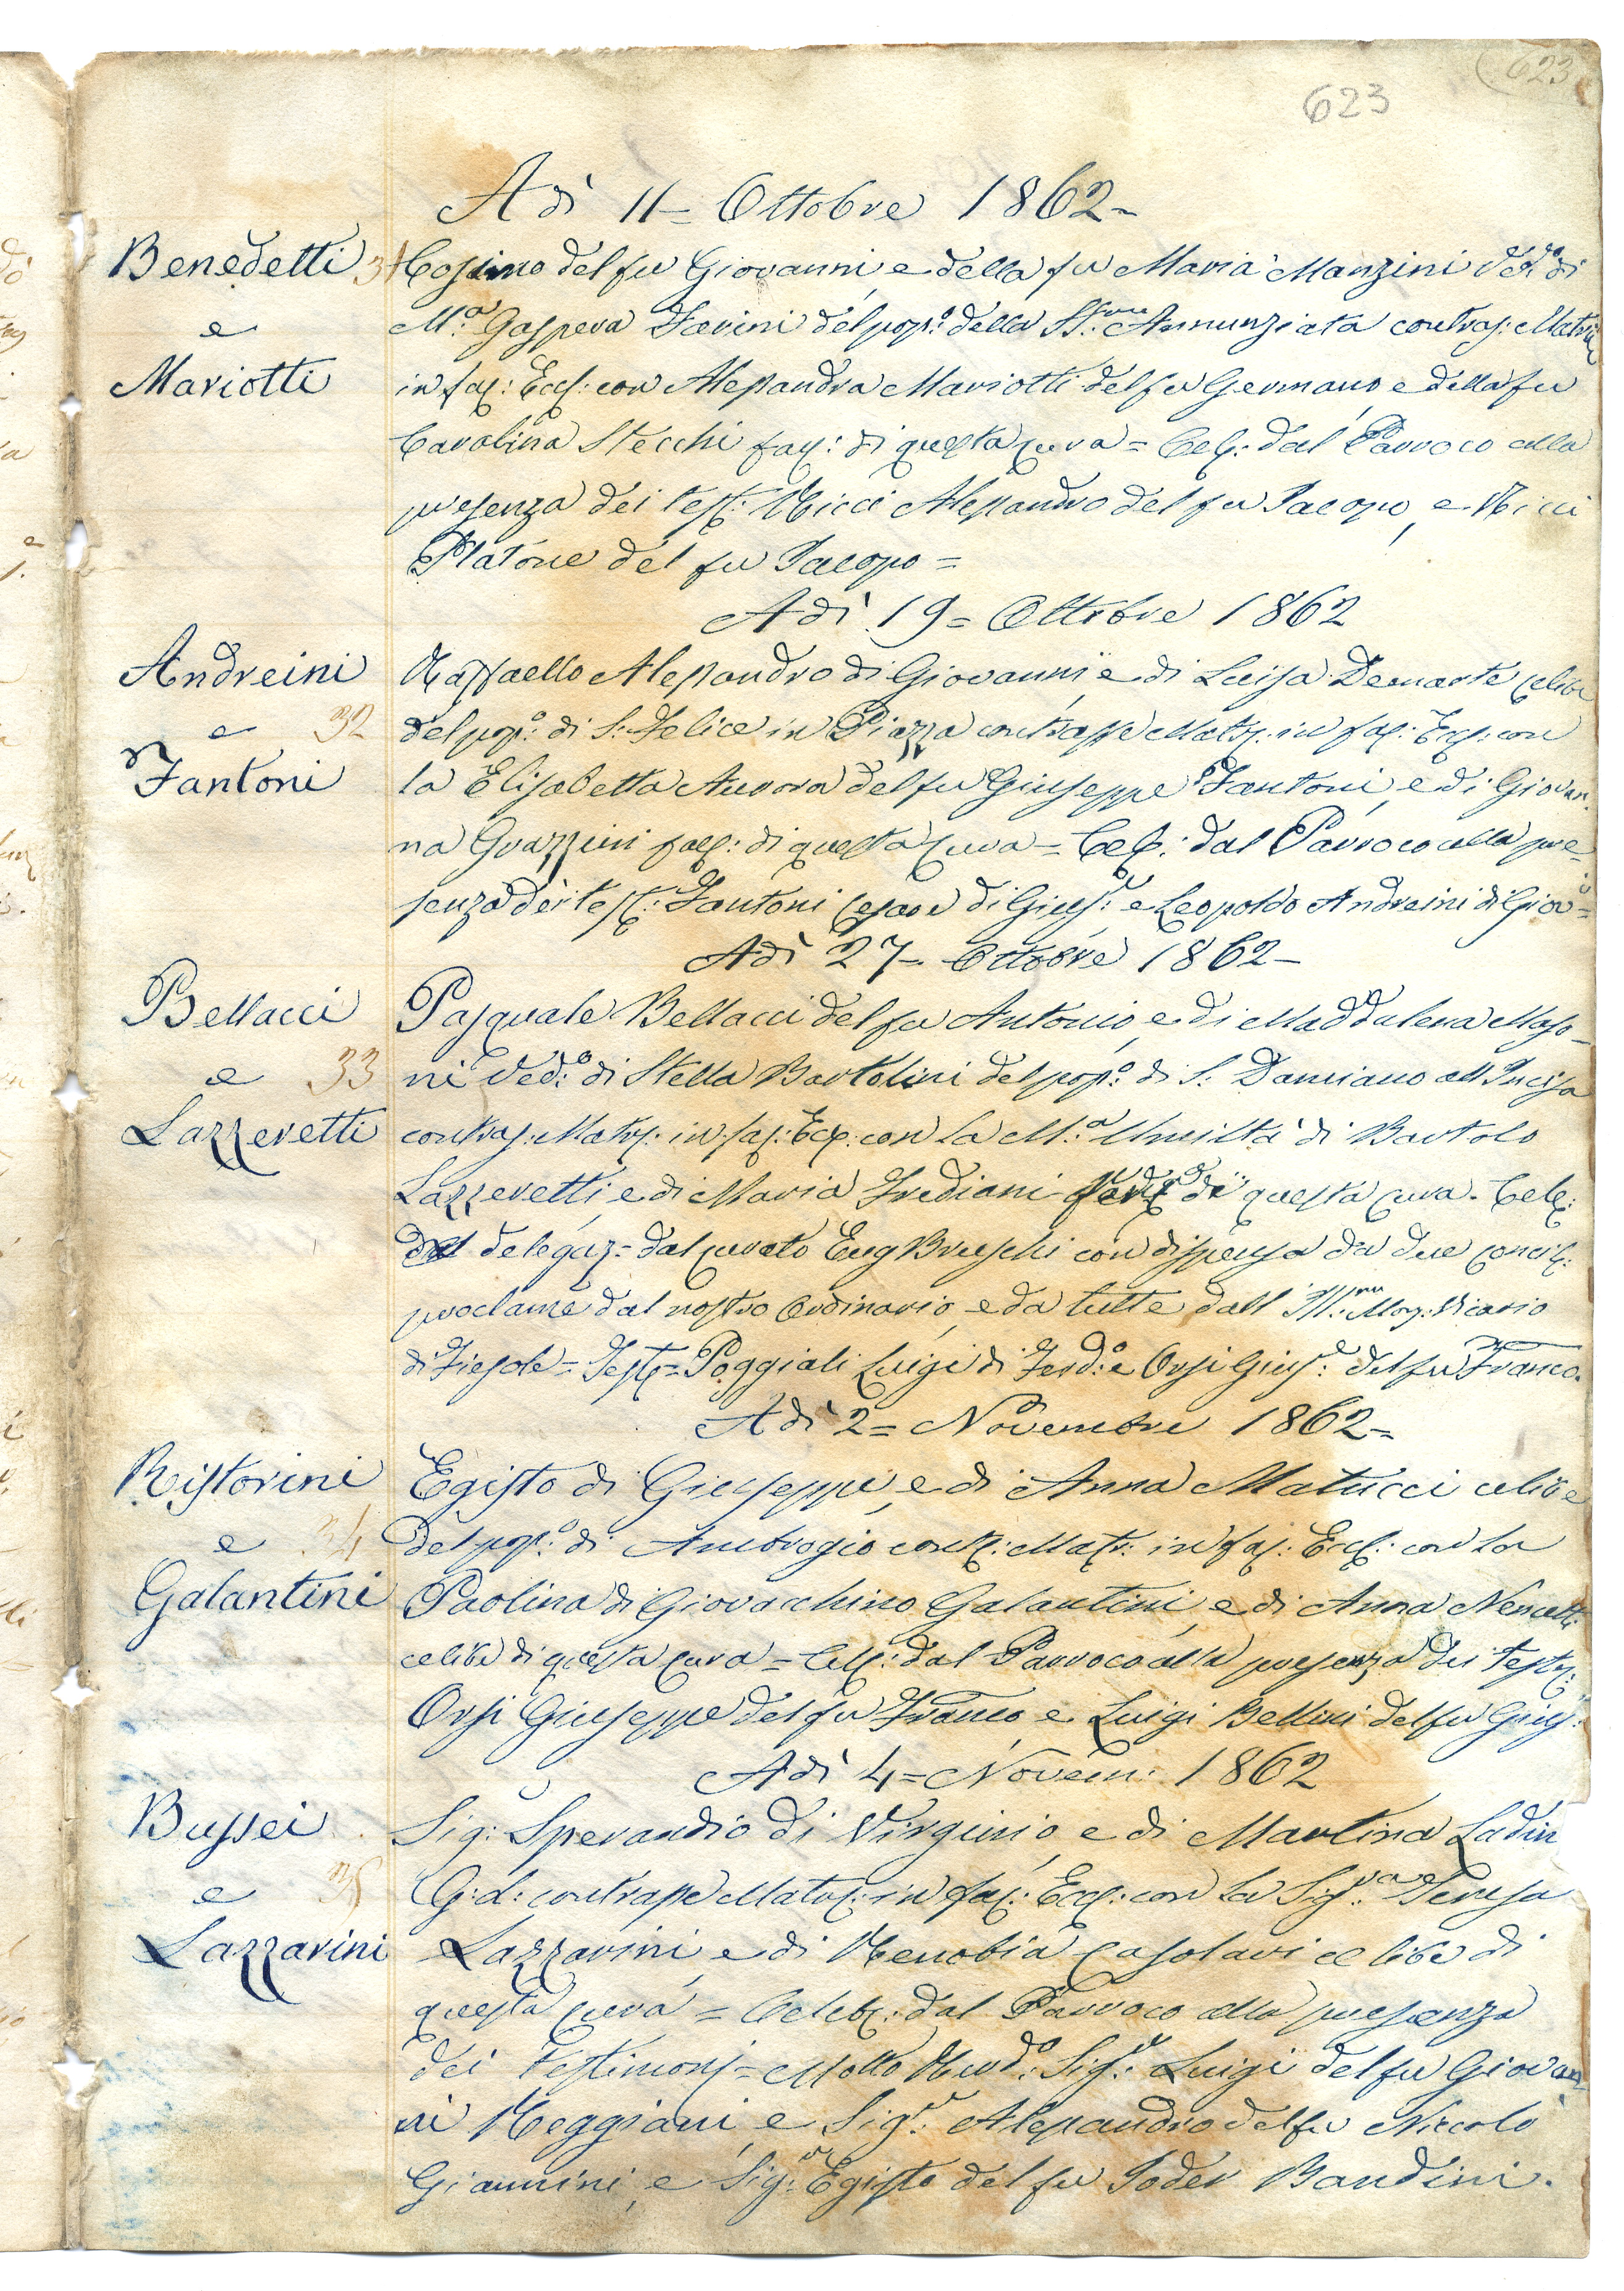 623
623
A dì 11= Ottobre 1862=
Benedetti 31 Cosimo del fu Giovanni, e della fu Maria Manzini Ved:o di
e M:a Gaspera Farini del pop:o della SS:ma Annunziata contras: Matri
Mariotti in fac: Eccl: con Alessandra Mariotti del fu Germano e della fu
Carolina Stecchi fac: di questa Cura = Cel: dal Parroco alla
presenza dei test: Ricci Alessandro del fu Jacopo, e Ricci
Platone del fu Jacopo =
A dì 19= Ottobre 1862
Andreini Raffaello Alessandro di Giovanni, e di Luisa celibe
e 32 del pop:o di S: Felice in Piazza contrasse Matr: in fac: Eccl: con
Fantoni la Elisabetta Aurora del fu Giuseppe Fantoni, e di Giovan
na Grazzini di questa Cura = Cel: dal Parroco alla pre=
senza dei test: Fantoni Cesare di Gius:e e Leopoldo Andreini di Giov:i=
A dì 27= Ottobre 1862=
Bellacci Pasquale Bellacci del fu Antonio, e di Maddalena Maso=
e 33 ni Ved:o di Stella Bartolini del pop:o di S: Damiano all Incisa
Lazzeretti contras: Matr: in fac: Eccl: con la M:a Umiltà di Bartolo
Lazzeretti, e di Maria Frediani di questa Cura. Cele:
delegaz= dal curato Eug Bruschi con dispensa da due concil:
proclame dal nostro Ordinario, e da tutte dall Ill:mo Mon: Vicario
di Fiesole = Test= Poggiali Luigi di Ferd:o e Orsi Gius:e del fu Franco.
A dì 2= Novembre 1862=
Ristorini Egisto di Giuseppe, e di Anna Matucci celibe
e 34 del pop:o di Ambrogio cont: Matr: in fac: Eccl: con la
Galantini Paolina di Giovacchino Galantini, e di Anna Nencetti
celibe di questa Cura = Cel: dal Parroco alla presenza dei Test:
Orsi Giuseppe del fu Franco, e Luigi Bellini del fu Gius:
A dì 4= Novem: 1862
Bussei Sig: Sperandio di Virginio, e di Martina Ladin
e 35 G:d: contrasse Matr: in fac: Eccl: con la Sig:ra Teresa
Lazzarini Lazzarini, e di Zenobia Casolari celibe di
questa Cura = Celeb: dal Parroco alla presenza
dei Testimonj = Molto Rev:do Sig:r Luigi del fu Giovan
ni Reggiani, e Sig:r Alessandro del fu Niccolò
Giannini, e Sig:r Egisto del fu Poder Bandini.